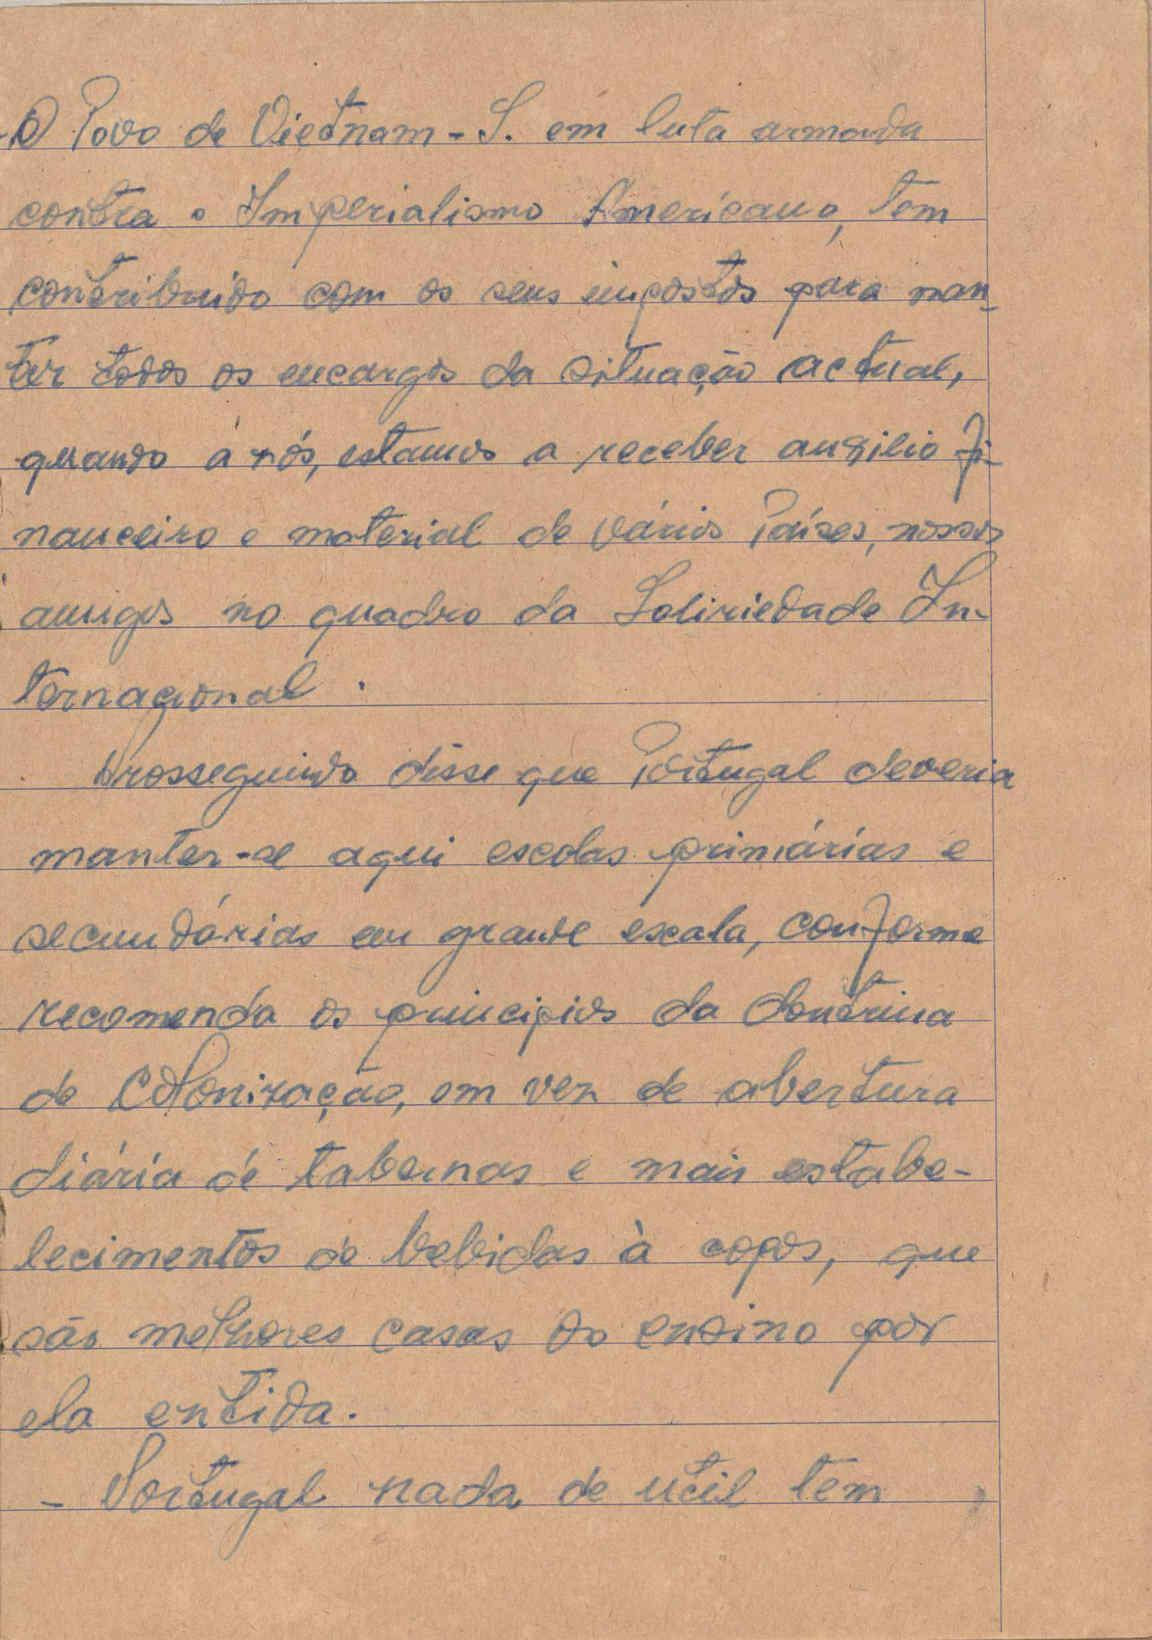 -O Povo de Vietnam-S. em luta armada
contra o Imperialismo Americano, tem
contribuido com os seus impostos para man-
ter todos os encargos da situação actual,
quando a nós, estamos a receber auxilio fi-
nanceiro e material de vários Países, nossos
amigos no quadro da Soliriedade In-
ternacional.
Prosseguindo disse que Portugal deveria
manter-se aqui escolas primárias e
secundárias em grande escala, conforme
recomenda os principios da dontrina
de Colonização, em vez de abertura
diária de tabernas e mais estabe-
lecimentos de bebidas à copos, que
são melhores casas do ensino por
ela entida.
- Portugal nada de util tem